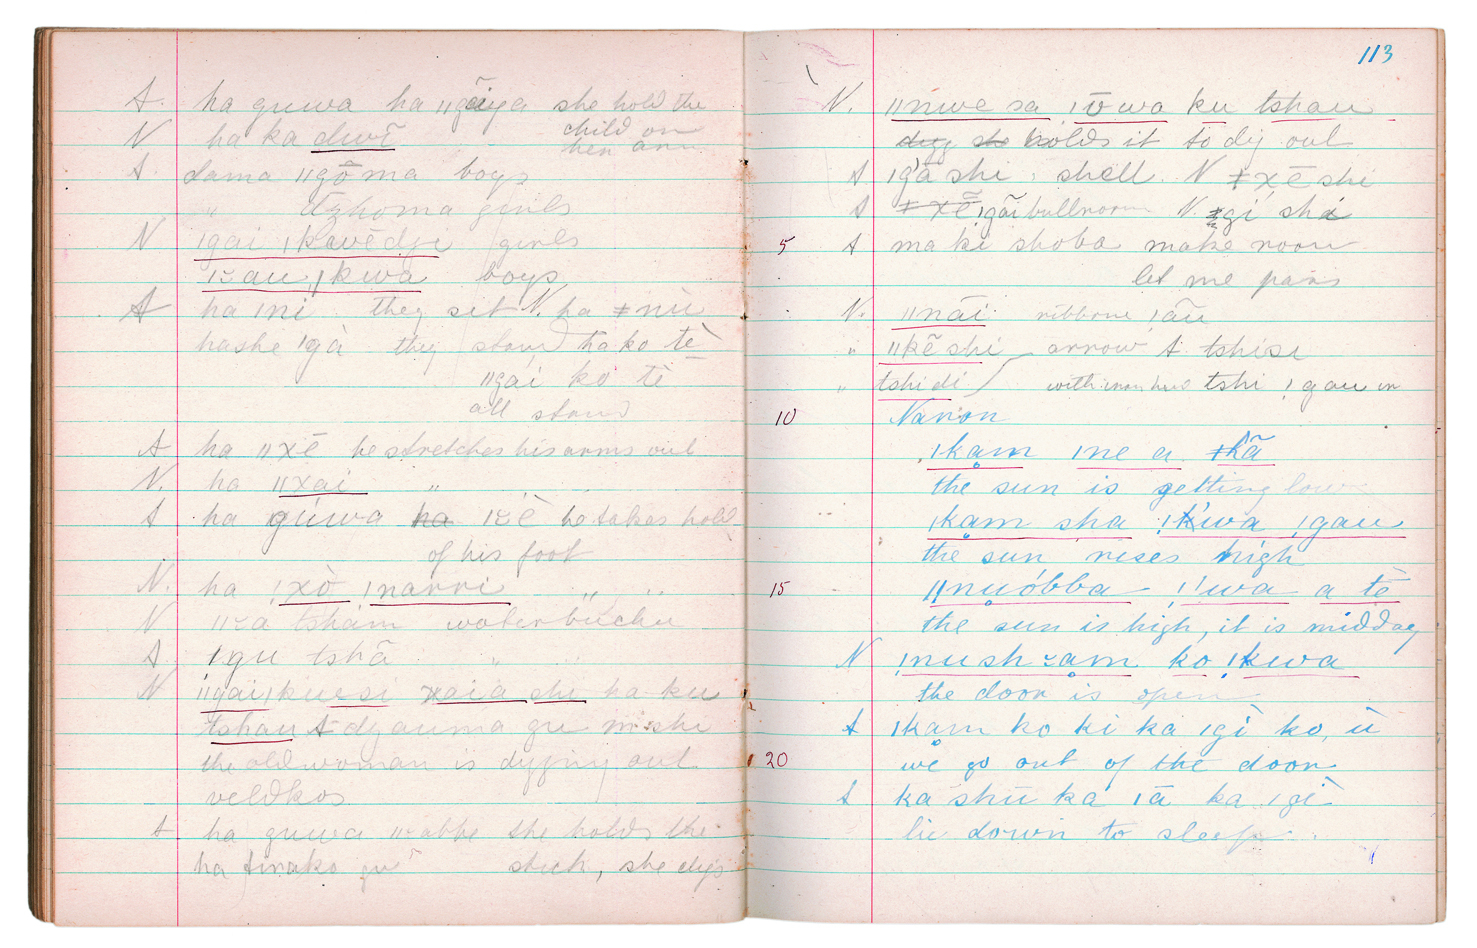 A. ha guwa ha ǁgãiya she hold the
N ha ka duvē child on
her arm
A. dama ǁgôma boys
" dzhoma girls
N ǀgai ǀkavēdji girls
boys
A ha ǀni they sit N. ha ǂnù
hashe ǃgà they stand ha ko tè
ǁgai ko tè
all stand
A ha ǁxē he stretches his arms out
N. ha ǁxai " " "
A ha gúwa ha he takes hold
of his foot
N. ha ǃxò ǀnarri " "
N tsham waterbuchu
A. ǀgu tshā " "
N ǁgai ǀkuesi shi ha ku
tshau A dzauma gu
the old woman is dygging out
veldkos
A ha guwa she holds the
ha stick, she digs
113
N. ǁnwe sa ǀōwa ku tshau
digg she holds it to dig out
A ǀgà shi : shell N ǂxē shi
A ǂxē ǀgãi bullroarer N.
5 A ma ki shoba make room
let me pass
N. ǁnāi ribbone ǀãũ
" ǁkẽshi arrow A tshisi
" tshi di with iron head tshi ǃgau in
10 Naron
ǀkam ǀne a ǂhã
the sun is getting low
ǀkam sha ǃkwa ǀgau
the sun rises high
15 ǁnuóbba ǃ'wa a tē
the sun is high, it is midday
N ko ǃkwa
the door is open
A ǀkam ko ki ka ǀgì ko, ù
20 we go out of the door
A ka shū ka ǀā ka ǀgì
lie down to sleep